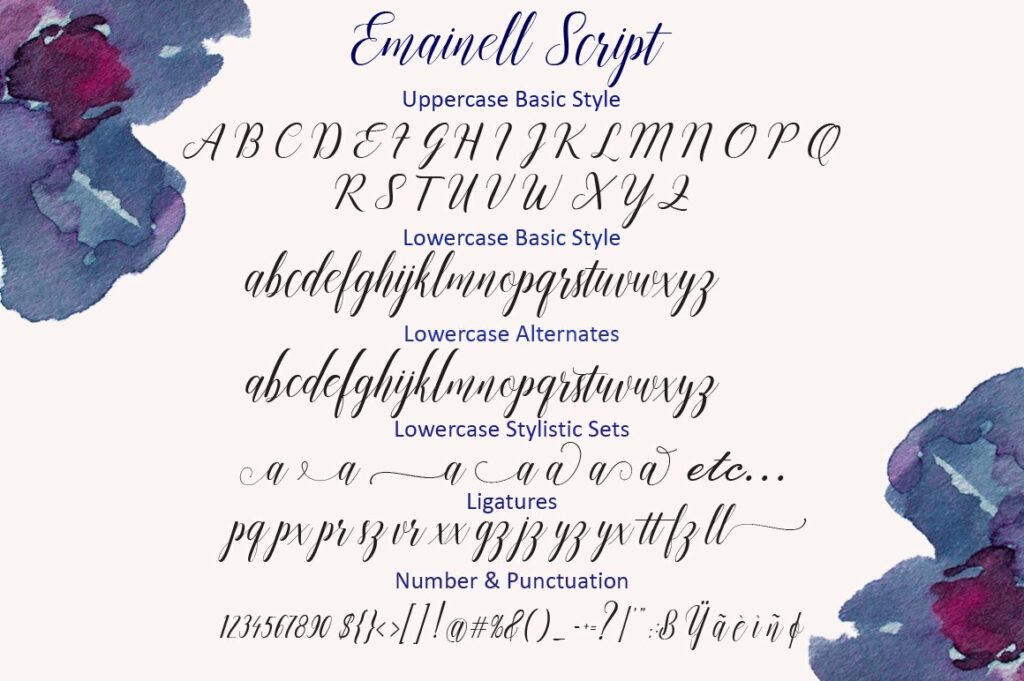 Emainell Script
Uppercase Basic Style
A B C D E F G H I J K L M N O P Q
R S T U V W X Y Z
Lowercase Basic Style
abcdefghijklmnopqrstuvwxyz
Lowercase Alternates
abcdefghijklmnopqrstuvwxyz
Lowercase Stylistic Sets
a a a a a a a etc...
Ligatures
pq px pr sz vr xx gz jz yz yx tt fz ll
Number & Punctuation
1234567890 ${}<>[]!@#%&()_-+=?/'" :;ß Ÿ ã è ì ñ